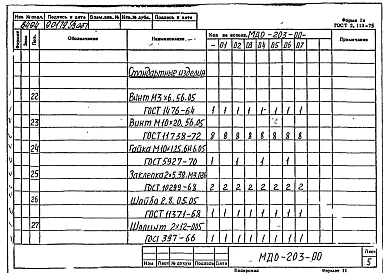 Инв. № подл. Подпись и дата Взам. инв. № Инв. № дубл. Подпись и дата
Форма 1а
ГОСТ 2.113-75
Формат Зона Поз. Обозначение Наименование Кол. на исполн. МДО-203-00- Примечание
- 01 02 03 04 05 06 07
Стандартные изделия
22 Винт М3×6.56.05
ГОСТ 1476-64 1 1 1 1 1 1 1 1
23 Винт М10×20.56.05
ГОСТ 11738-72 8 8 8 8 8 8 8 8
24 Гайка М10×1.25.6Н6.05
ГОСТ 5927-70 1 1 1
25 Заклепка 2×5.38.М3.136
ГОСТ 10299-68 2 2 2 2 2 2 2 2
26 Шайба 2.8.05.05
ГОСТ 11371-68 1 1 1 1 1 1 1 1
27 Шплинт 2×12-005
ГОСТ 397-66 1 1 1 1 1 1 1 1
МДО-203-00
Лист
5
Изм Лист № докум Подпись Дата
Копировал Формат 11